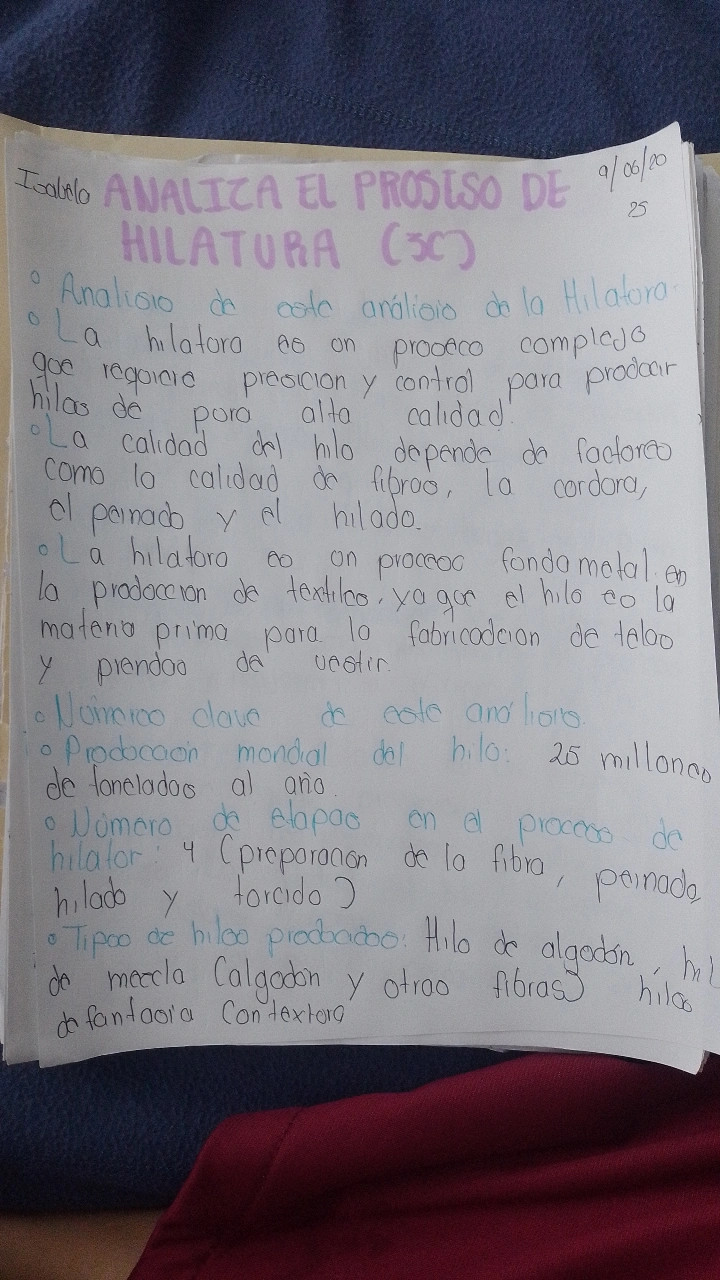 Isabela ANALIZA EL PROSESO DE 9/06/20
25
HILATURA (3C)
° Analisis de este análisis de la Hilatura.
° La hilatura es un proseco complejo
que requiere presicion y control para producir
hilos de pura alta calidad.
° La calidad del hilo depende de factores
como la calidad de fibras, la cordura,
el peinado y el hilado.
° La hilatura es un procesoc fundametal en
la produccion de textiles, ya que el hilo es la
materia prima para la fabricadcion de telas
y prendas de vestir.
° Números clave de este análisis.
° Produccion mondial del hilo: 25 millones
de toneladas al año.
° Número de etapas en el proceso de
hilator: 4 (preparacion de la fibra, peinado,
hilado y torcido)
° Tipos de hilos producidos: Hilo de algodón, hil
de mezcla (algodón y otras fibras) hilos
de fantasia con textura